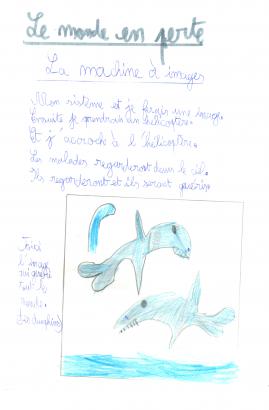 Le monde en perte
La machine à images
Mon sistème et je ferais une image.
Ensuite je prendrais un hélicoptère.
Et j'accroche à l'hélicoptère.
Les malades regarderont dans le ciel.
Ils regarderont et ils seront guéris.
Voici
l'image
qui guérit
tout le
monde.
(les dauphins)